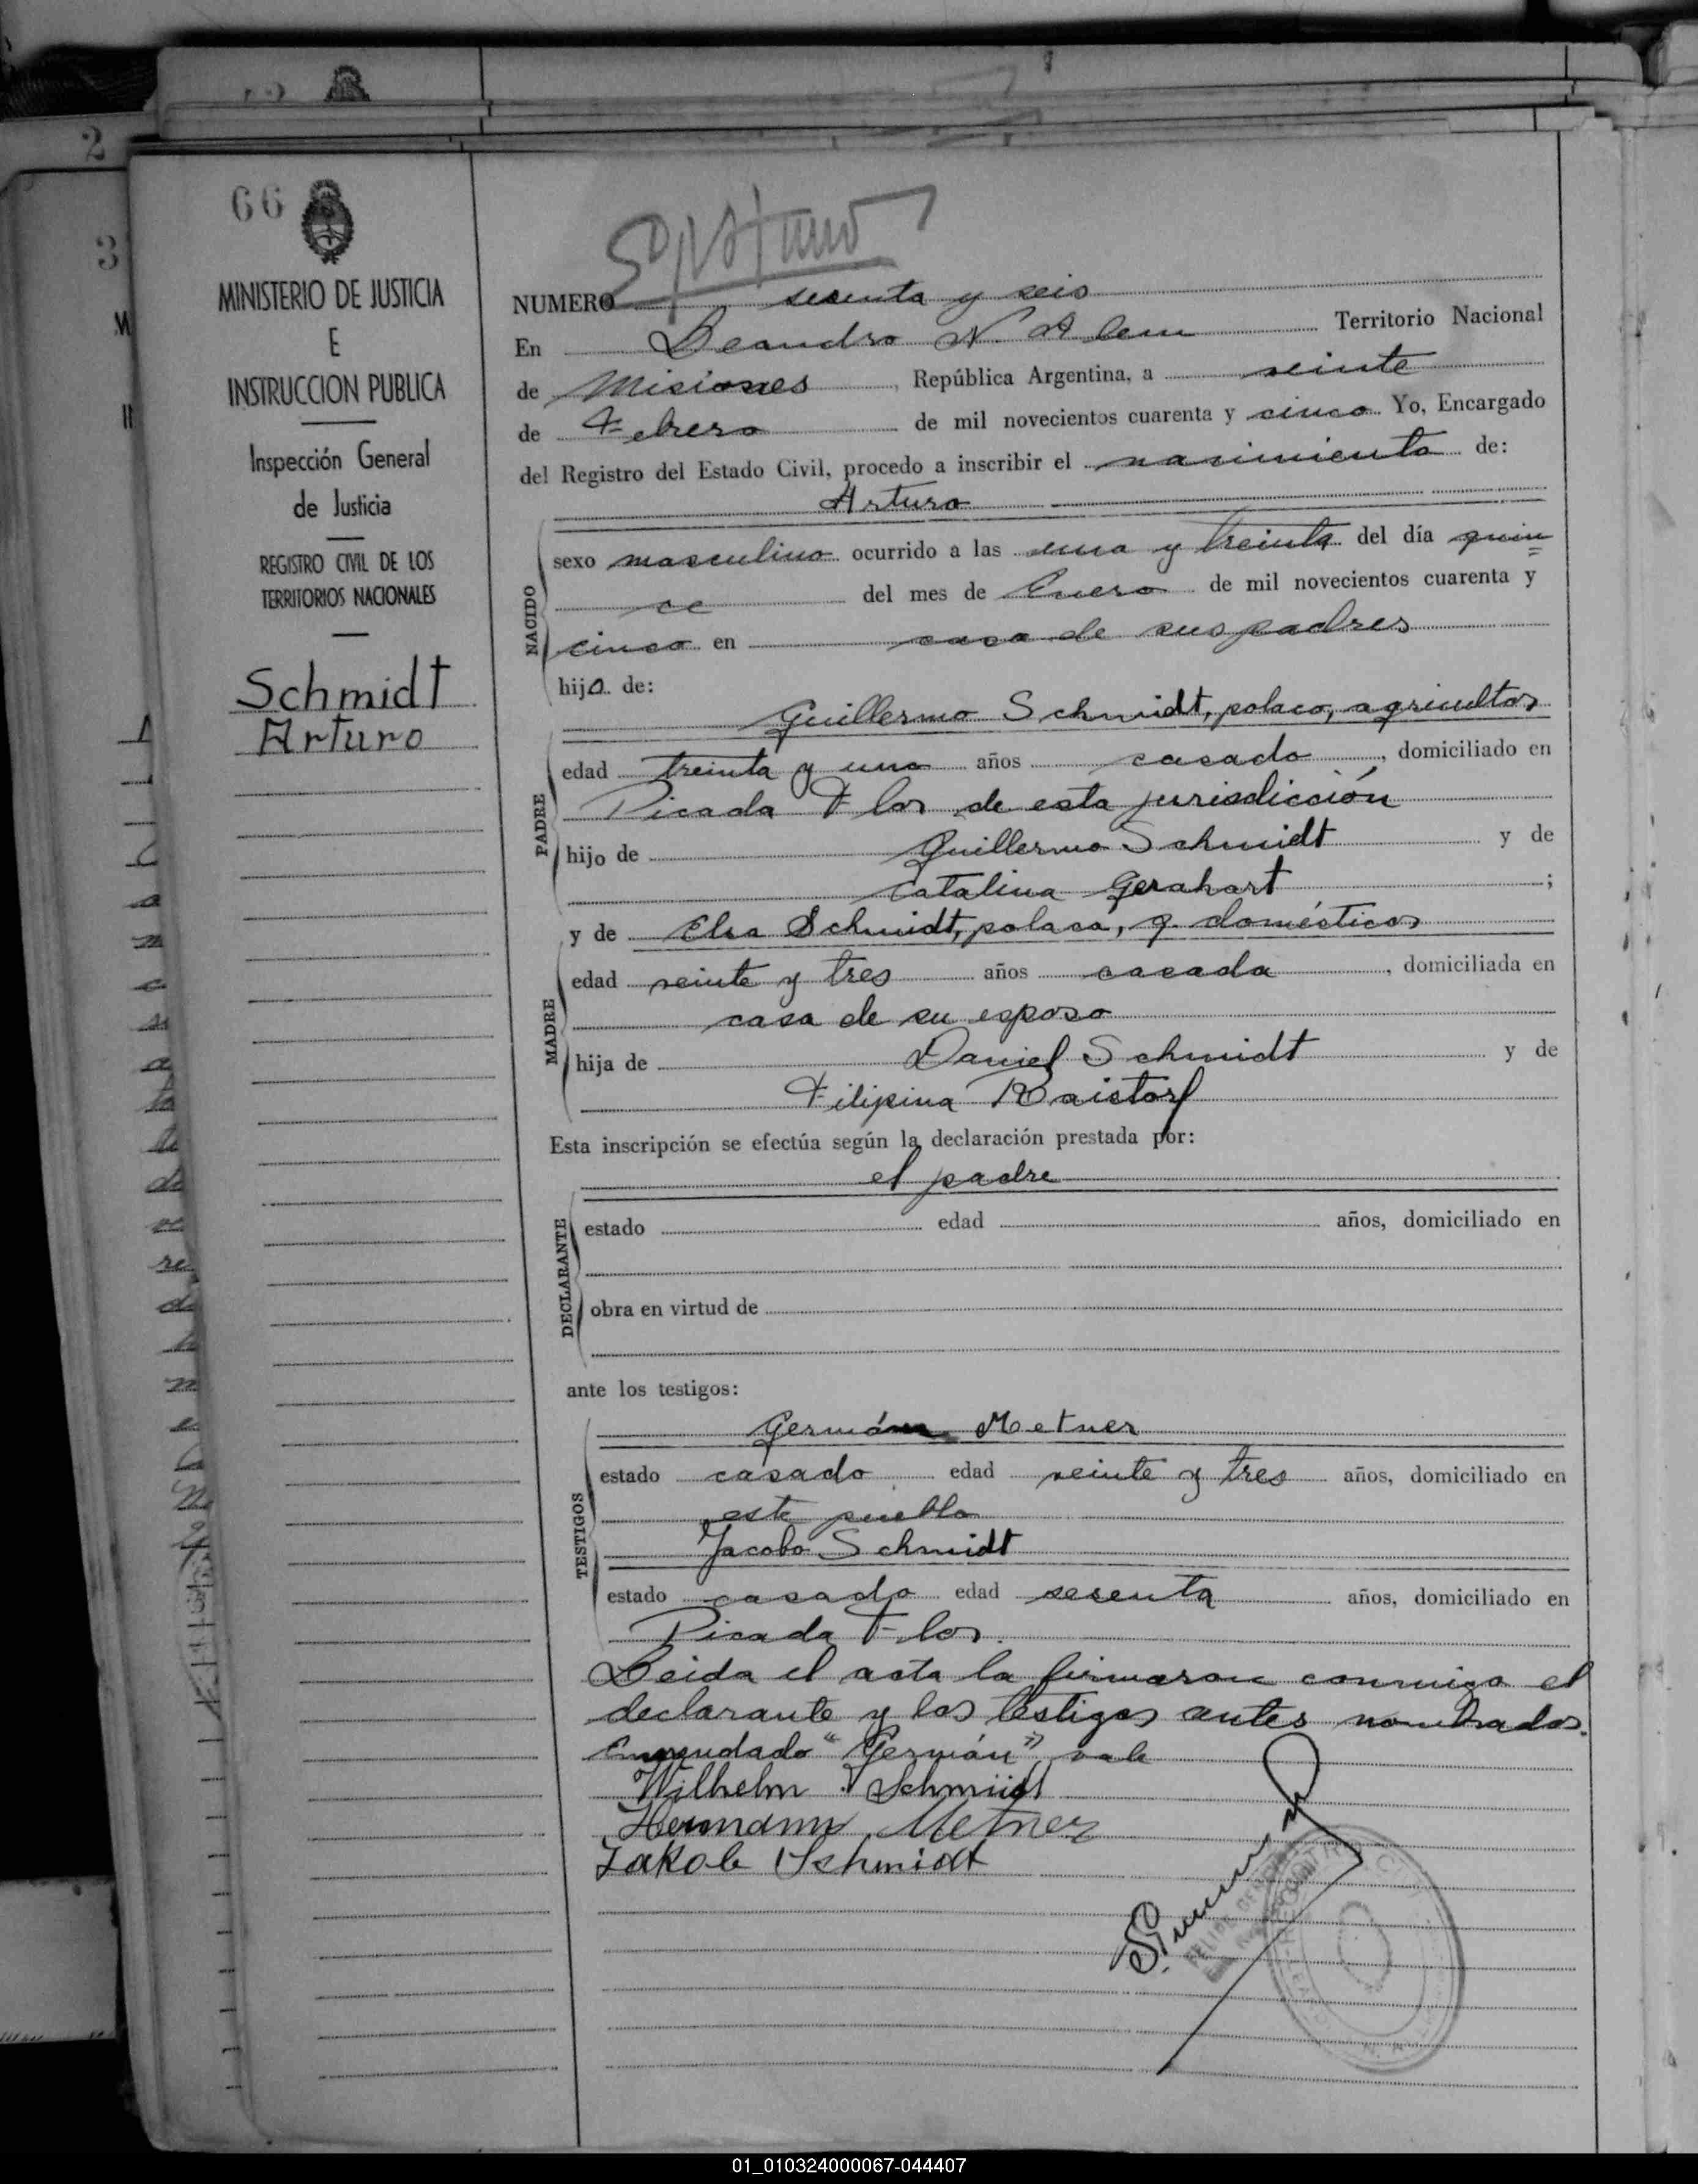 66
MINISTERIO DE JUSTICIA
E
INSTRUCCION PUBLICA
Inspección General
de Justicia
REGISTRO CIVIL DE LOS
TERRITORIOS NACIONALES
Schmidt
Arturo
NUMERO sesenta y seis
En Leandro N. Alem Territorio Nacional
de Misiones, República Argentina, a veinte
de Febrero de mil novecientos cuarenta y cinco Yo, Encargado
del Registro del Estado Civil, procedo a inscribir el nacimiento de:
Arturo
NACIDO
sexo masculino ocurrido a las una y treinta del día quin
ce del mes de Enero de mil novecientos cuarenta y
cinco en casa de sus padres
hijo de:
PADRE
Guillermo Schmidt, polaco, agricultor
edad treinta y uno años casado, domiciliado en
Picada Flor de esta jurisdicción
hijo de Guillermo Schmidt y de
Catalina Gerahart;
MADRE
y de Elsa Schmidt, polaca, q. domésticos
edad veinte y tres años casada, domiciliada en
casa de su esposo
hija de Daniel Schmidt y de
Filipina Raistorf
Esta inscripción se efectúa según la declaración prestada por:
el padre
DECLARANTE
estado edad años, domiciliado en
obra en virtud de
ante los testigos:
TESTIGOS
Germán Metner
estado casado edad veinte y tres años, domiciliado en
este pueblo
Jacobo Schmidt
estado casado edad sesenta años, domiciliado en
Picada Flor.
Leida el acta la firmaron conmigo el
declarante y los testigos antes nombrados.
Enmendado "Germán" vale
Wilhelm Schmidt
Hermann Metner
Jakob Schmidt
01_010324000067-044407